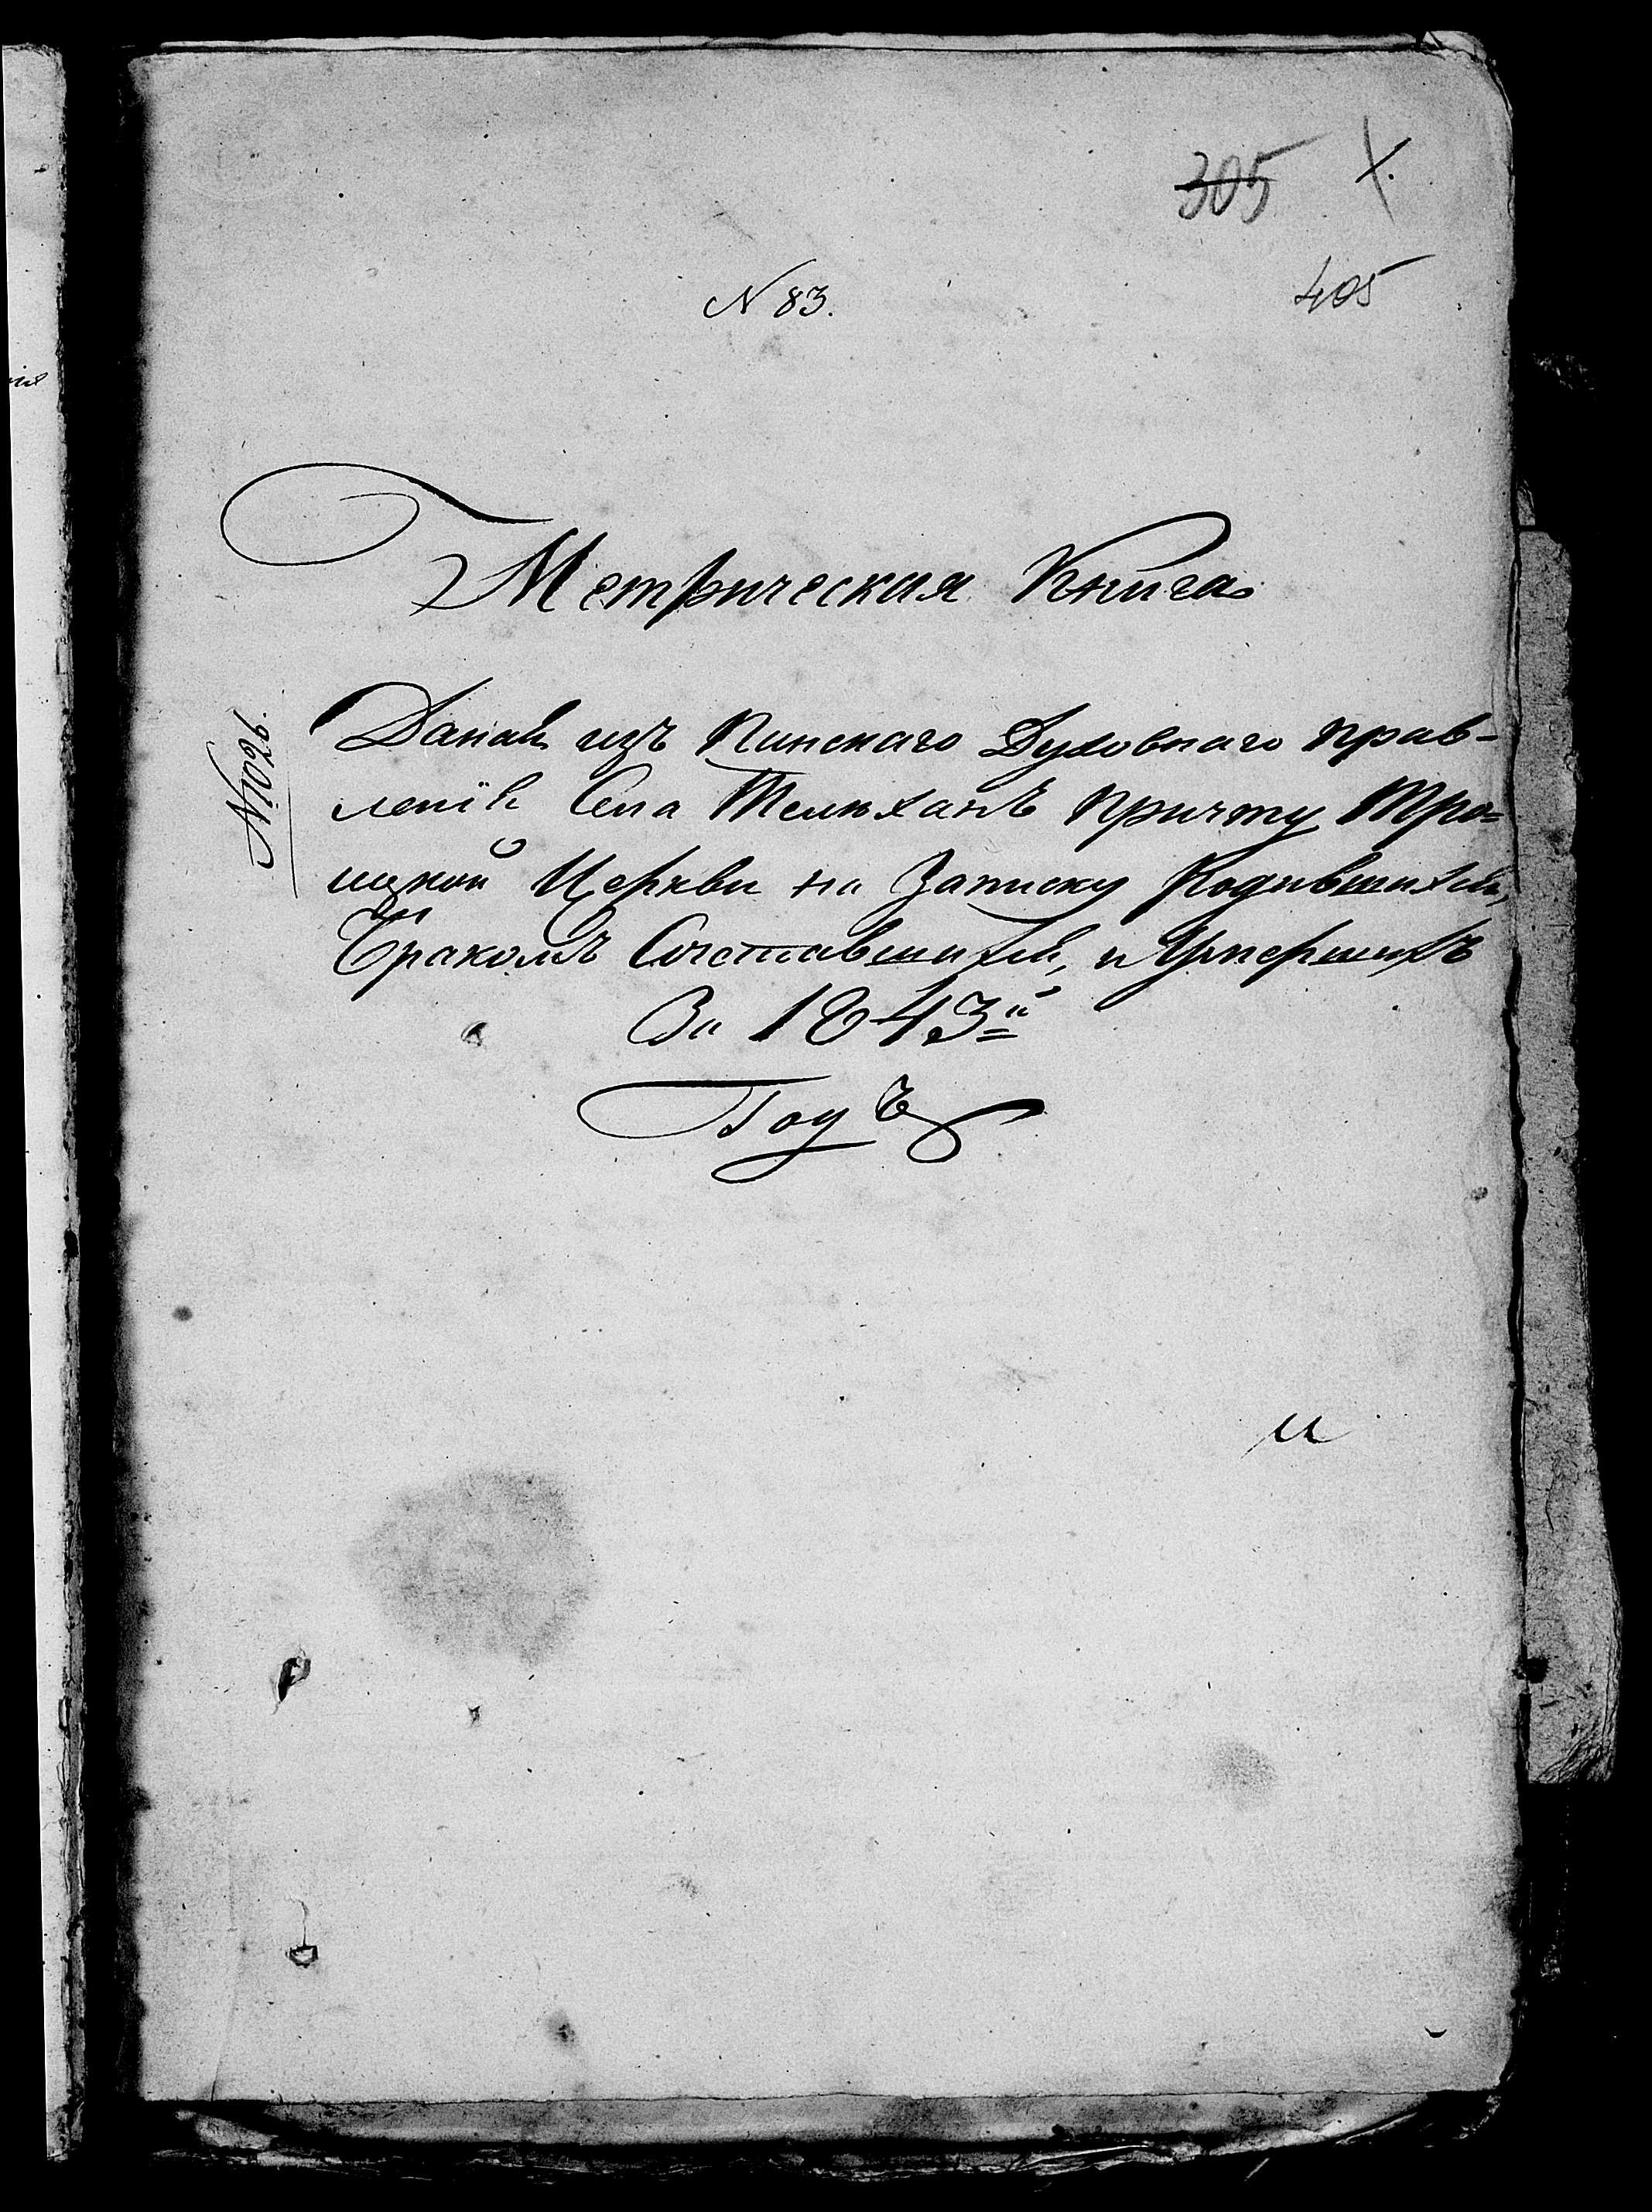 305
405
N 83.
Метрическая Книга
N 1026.
Данаѧ изъ Пинскаго Духовнаго Прав-
ленїѧ Села Телѣханъ Причту Тро-
ицкой Церкви на Записку Родившихсѧ,
Бракомъ Сочетавшихсѧ, и Умершихъ
За 1843й
Годъ